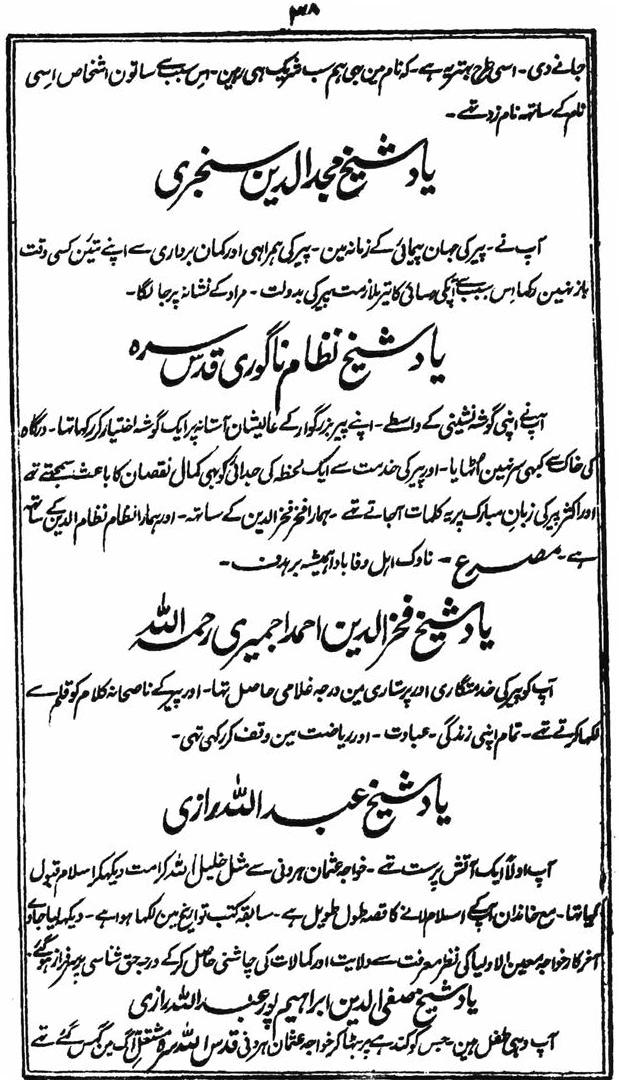 ۳۸
جانے دی - اسی طرح بہتر یہ ہے - کہ نام مین بھی ہم سب شریک ہی رہین - اس سبب سے ساتون اشخاص اِسی
نام کے ساتہہ نام زد تہے -
یاد شیخ مجد الدین سنجری
آپ نے - پیر کی جہان پیمائی کے زمانہ مین - پیر کی ہمراہی اور کمان برداری سے اپنے تیئن کسی وقت
باز نہین رکہا اِس سبب سے آپکی رسائی کا تیر ملازمت پیر کی بدولت - مراد کے نشانہ پر جا لگا -
یاد شیخ نظام ناگوری قدس سرہ
آپنے اپنی گوشہ نشینی کے واسطے - اپنے پیر بزرگوار کے عالیشان آستانہ پر ایک گوشہ اختیار کر رکہا تہا - درگاہ
کی خاک سے کبہی سر نہین اُٹہایا - اور پیر کی خدمت سے ایک لحظہ کی جدائی کو بہی کمال نقصان کا باعث سمجہتے تہے
اور اکثر پیر کی زبان مبارک پر یہ کلمات آجاتے تہے - ہمارا فخر فخر الدین کے ساتہہ - اور ہمارا نظام نظام الدین کے ساتہہ
ہے - مصرع - ناوک اہل وفا بادا ہمیشہ بر ہدف -
یاد شیخ فخر الدین احمد اجمیری رحمہ اللہ
آپ کو پیر کی خدمتگاری اور پرستاری مین درجہ غلامی حاصل تہا - اور پیر کے ناصحانہ کلام کو قلم سے
لکہا کرتے تہے - تمام اپنی زندگی - عبادت - اور ریاضت مین وقف کر رکہی تہی -
یاد شیخ عبد اللہ رازی
آپ اولاً ایک آتش پرست تہے - خواجہ عثمان ہرونی سے مثل خلیل اللہ کرامت دیکہکر اسلام قبول
کیا تہا - مع خاندان آپکے اسلام لانے کا قصہ طول طویل ہے - سابقہ کتب تواریخ مین لکہا ہوا ہے - دیکہہ لیا جاوے
آخر کار خواجہ معین الاولیا کی نظر معرفت سے ولایت اور کمالات کی چاشنی حاصل کر کے درجہ حق شناسی پر سرفراز ہو گئے -
یاد شیخ صفی الدین ابراہیم پور عبد اللہ رازی
آپ وہی طفل ہین - جس کو کندہے پر بٹہا کر خواجہ عثمان ہرونی قدس اللہ سرہ مشتعل آگ مین گہس گئے تہے